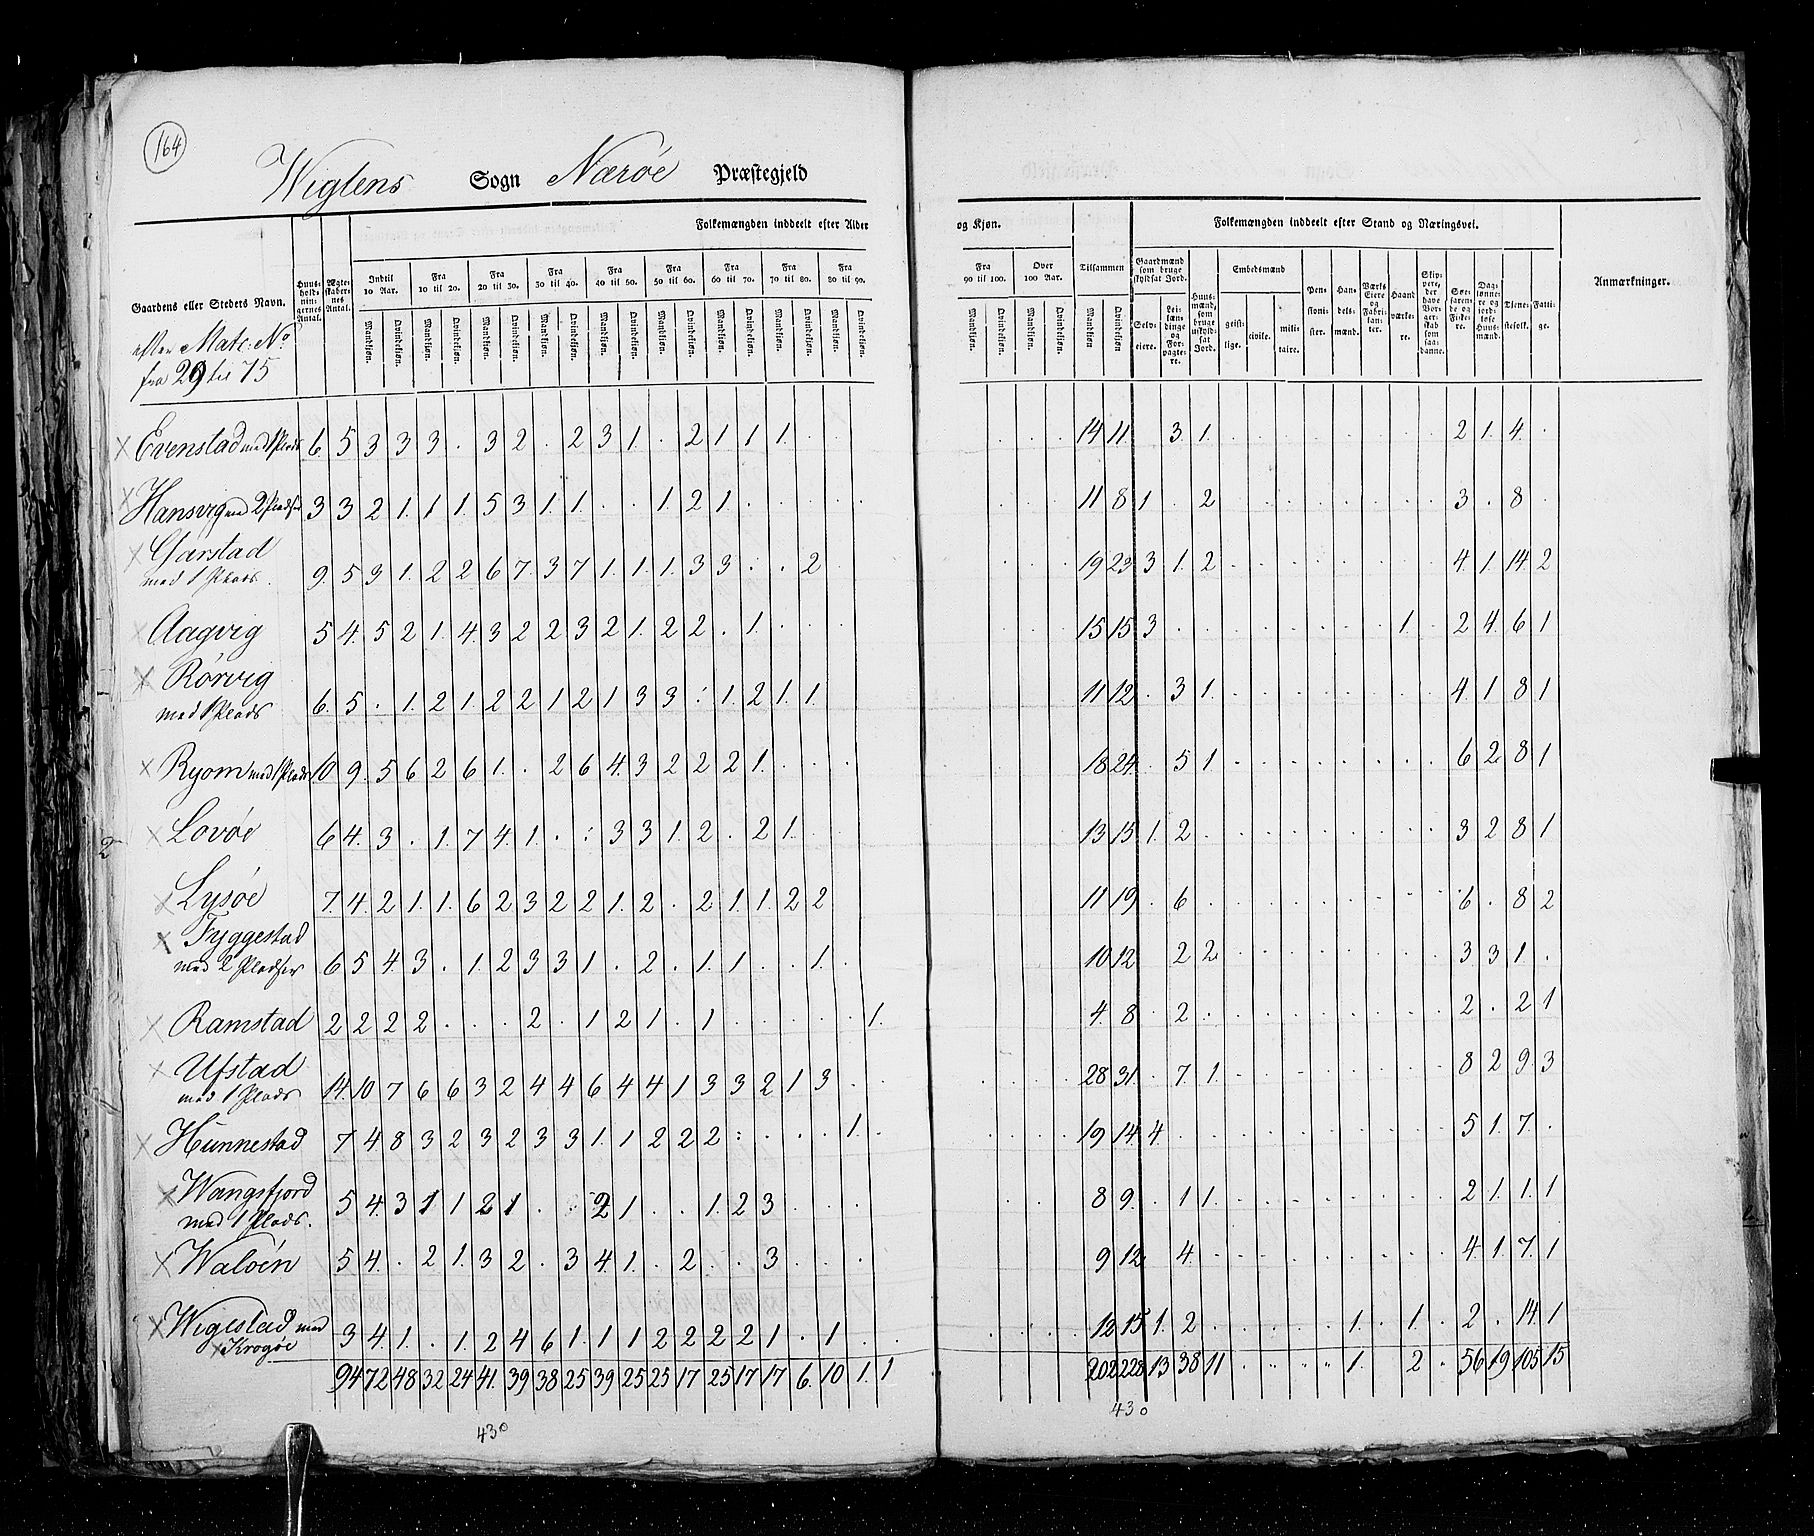 164
Wiglens Sogn Nærøe Præstegjeld
Folkemængden inddeelt efter Alder og Kjøn. Tilsammen Folkemængden inddeelt efter Stand og Næringsvei. Anmærkninger.
Gaardens eller Stedets Navn. Huusholdningernes Antal. Ægteskabernes Antal.
Indtil 10 Aar. Fra 10 til 20. Fra 20 til 30. Fra 30 til 40. Fra 40 til 50. Fra 50 til 60. Fra 60 til 70. Fra 70 til 80. Fra 80 til 90. Fra 90 til 100. Over 100 Aar.
Mandkjøn. Qvindekjøn.
Gaardmænd som bruge skyldsat Jord. Selveiere. Leilændinge og Forpagtere. Huusmænd, som bruge uskyldsat Jord. Embedsmænd geistlige. civile. militaire. Pensionister. Handelsmænd. Værks Eiere og Fabrikanter. Haandværkere. Skippere, der have Borgerskab som saadanne. Søefarende og Fiskere. Daglønnere og jordløse Huusmænd. Tjenestefolk. Fattige.
efter Matr. No
fra 29 til 75
Evenstad med 1 Plads 6 5 3 3 3 . 3 2 . 2 3 1 . 2 1 1 1 . . 14 11 3 1 2 1 4 .
Hansvig med 2 Pladser 3 3 2 1 1 1 5 3 1 1 . . 1 2 1 . . . . . 11 8 1 . 2 3 . 8 .
Garstad
med 1 Plads. 9 5 3 1 2 2 6 7 3 7 1 1 1 3 3 . . 2 19 23 3 1 2 4 1 14 2
Aagvig 5 4 5 2 1 4 3 2 2 3 2 1 2 2 . 1 . . . 15 15 3 1 2 4 6 1
Rørvig
med 1 Plads 6 5 . 1 2 1 2 2 1 2 1 3 3 : 1 2 1 1 11 12 . 3 1 4 1 8 1
Ryom med 1 Plads 10 9 5 6 2 6 1 . 2 6 4 3 2 2 2 1 . . . 18 24 . 5 1 6 2 8 1
Lovøe 6 4 3 . 1 7 4 1 . : 3 3 1 2 . 2 1 . . 13 15 1 2 3 2 8 1
Lysøe 7 4 2 1 1 6 2 3 2 2 1 2 . 2 1 1 2 2 11 19 . 6 6 . 8 2
Fyggestad
med 2 Pladser 6 5 4 3 . 1 2 3 3 1 . 2 . 1 1 . . 1 . 10 12 2 2 3 3 1 .
Ramstad 2 2 2 2 . . . 2 . 1 2 1 . 1 . . . . . 1 4 8 . 2 2 . 2 1
Ufstad
med 1 Plads 14 10 7 6 6 3 2 4 4 6 4 4 1 3 3 2 1 3 . . 28 31 . 7 1 8 2 9 3
Hunnestad 7 4 8 3 2 3 2 3 3 1 1 2 2 2 : . . . 1 . 19 14 4 5 1 7 .
Wangsfjord
med 1 Plads. 5 4 3 1 1 2 1 . . 2 1 . . 1 2 3 . . . 8 9 . 1 1 2 1 1 1
Waløen 5 4 . 2 1 3 2 . 3 4 1 . 2 . . 3 . . . 9 12 4 4 1 7 1
Wigestad med
Krogøe 3 4 1 . 1 2 4 6 1 1 1 2 2 2 2 1 . 1 . . 12 15 1 2 1 1 2 . 14 1
94 72 48 32 24 41 39 38 25 39 25 25 17 25 17 17 6 10 1 1 202 228 13 38 11 1 2 56 19 105 15
430 430
2